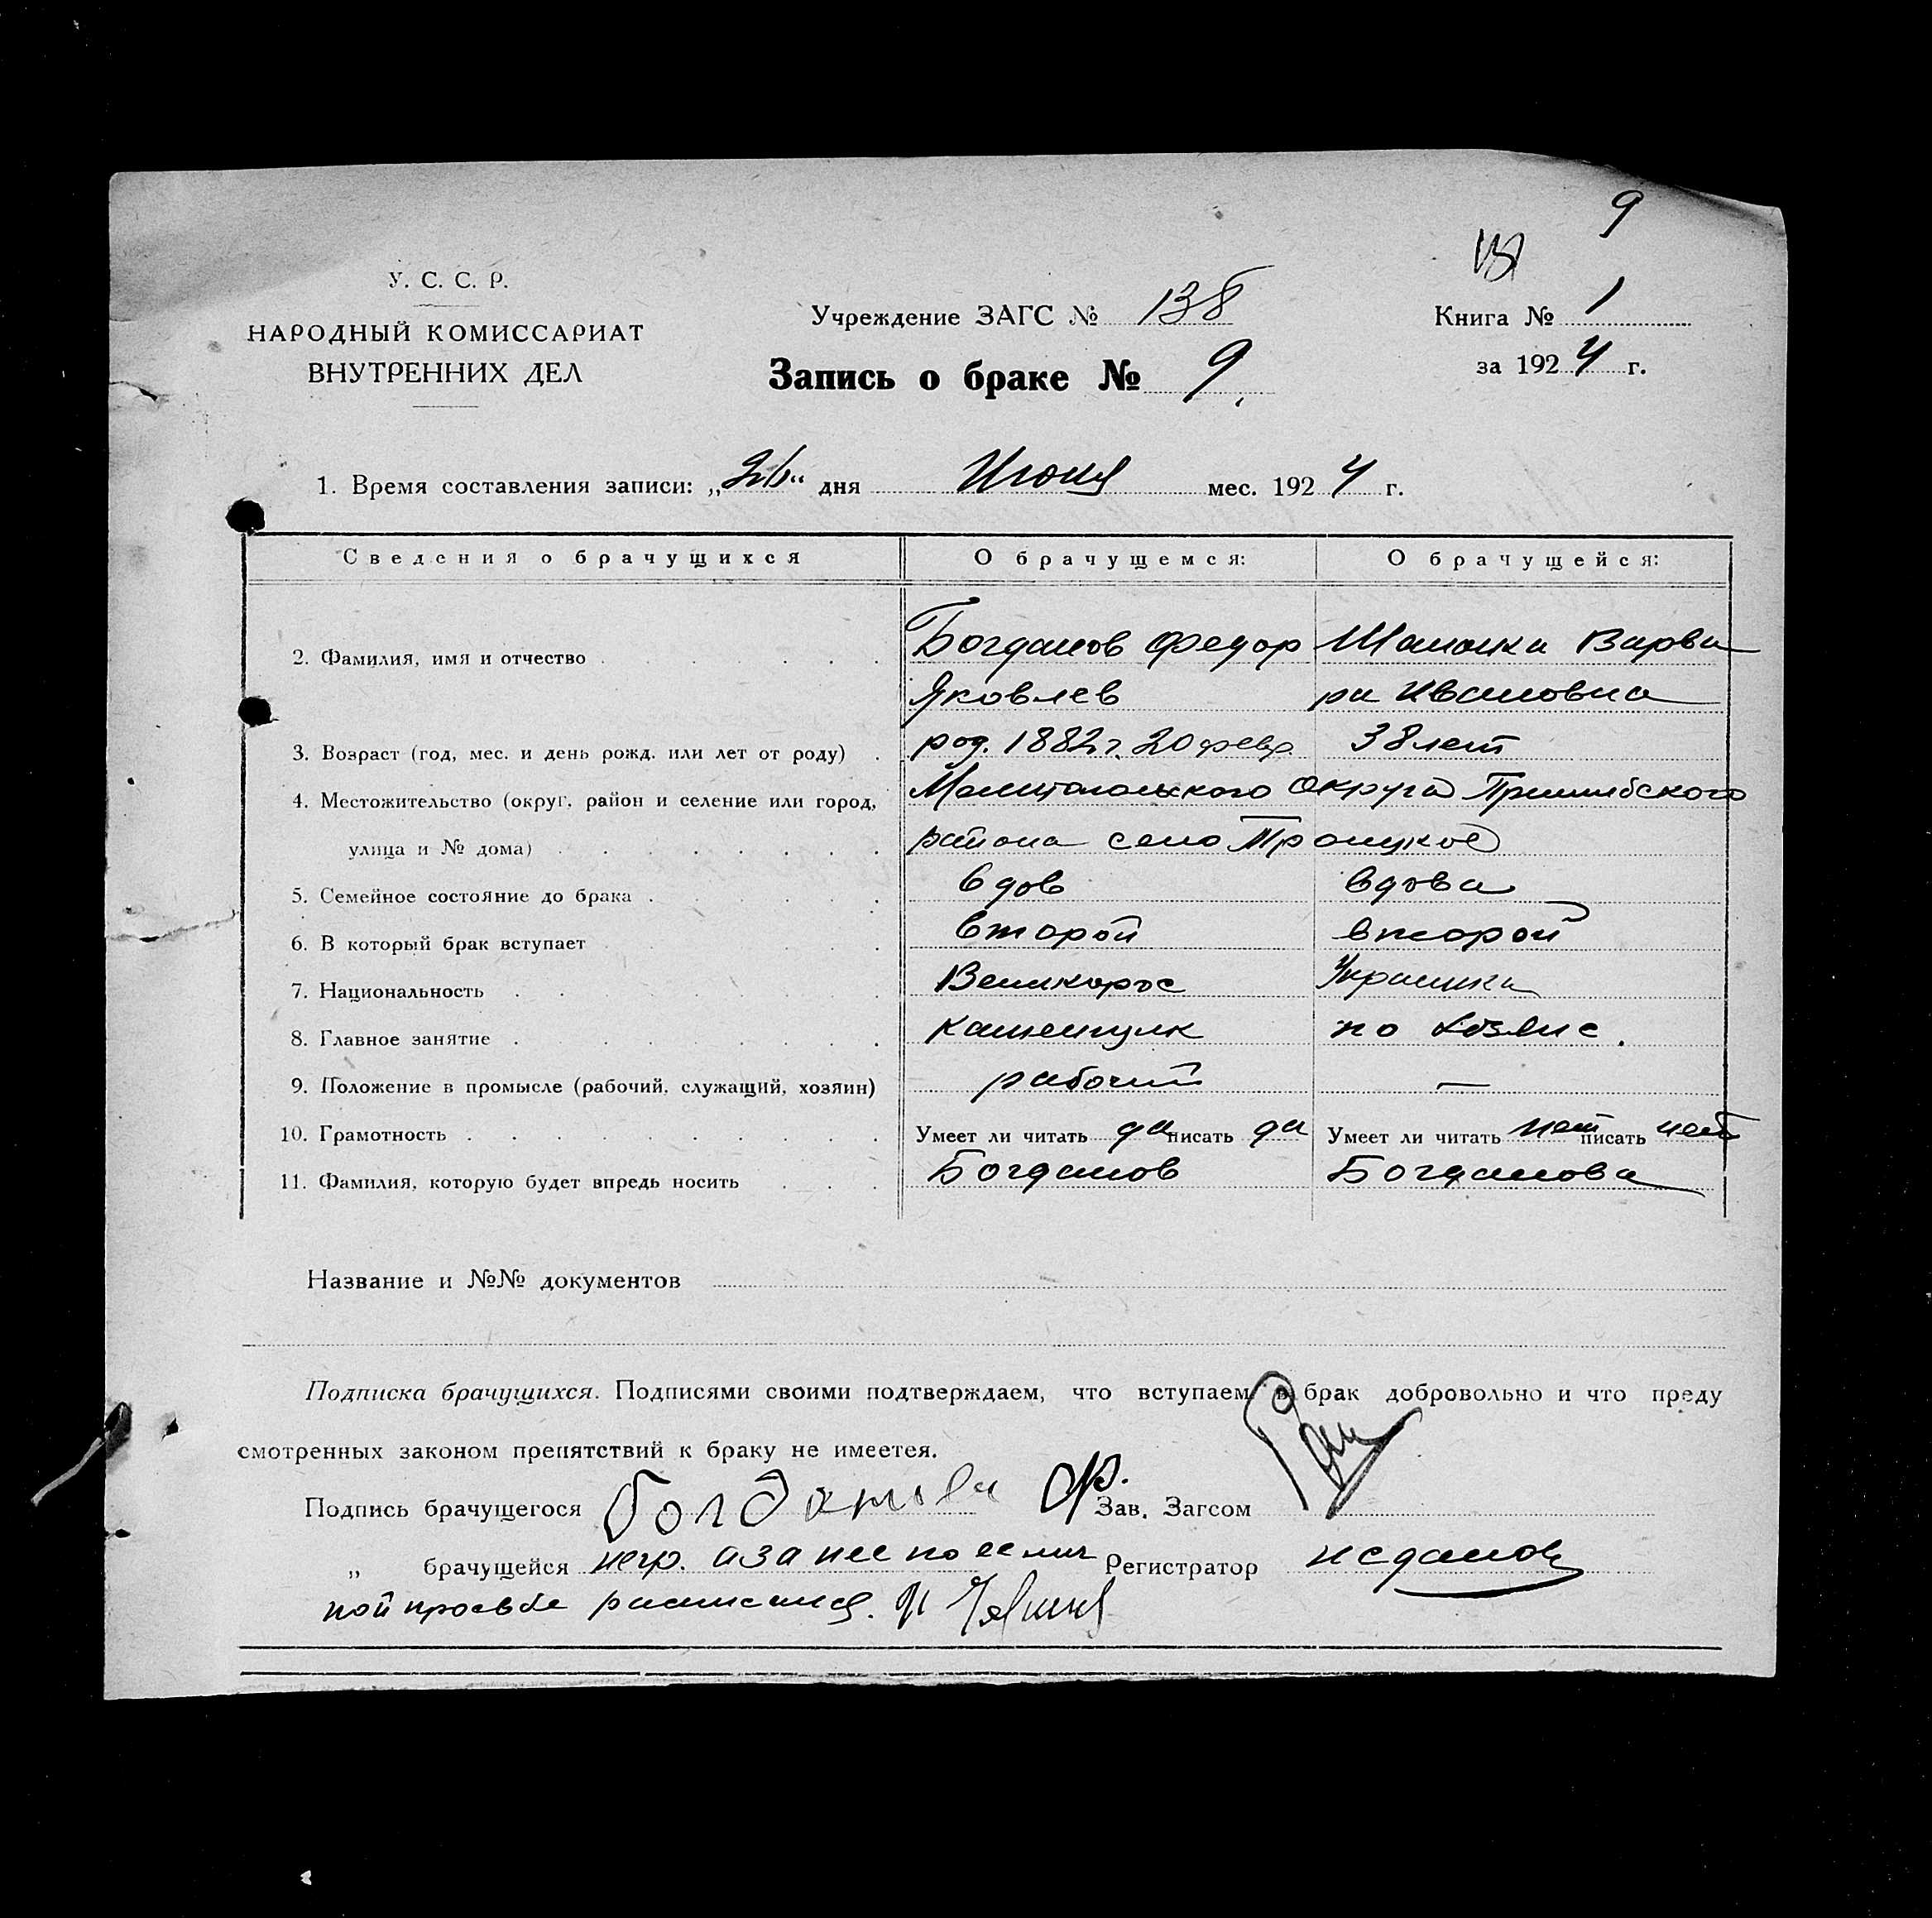 9
У. С. С. Р.
НАРОДНЫЙ КОМИССАРИАТ
ВНУТРЕННИХ ДЕЛ
Учреждение ЗАГС № 138
Запись о браке № 9.
Книга № 1
за 1924 г.
1. Время составления записи: „26“ дня Июня мес. 1924 г.
Сведения о брачущихся О брачущемся: О брачущейся:
2. Фамилия, имя и отчество Богданов Федор Варва
Яковлев ра Ивановна
3. Возраст (год, мес. и день рожд. или лет от роду) род. 1882 г. 20 февр. 38 лет
4. Местожительство (округ, район и селение или город, Округа Пришибского
улица и № дома) района село Троицкое
5. Семейное состояние до брака вдов вдова
6. В который брак вступает второй второй
7. Национальность Великорос Украинка
8. Главное занятие каменщик по хозяйс.
9. Положение в промысле (рабочий, служащий, хозяин) рабочий —
10. Грамотность Умеет ли читать да писать да Умеет ли читать нет писать нет
11. Фамилия, которую будет впредь носить Богданов Богданова
Название и №№ документов
Подписка брачущихся. Подписями своими подтверждаем, что вступаем в брак добровольно и что преду
смотренных законом препятствий к браку не имеется.
Подпись брачущегося Ф. Зав. Загсом
„ брачущейся негр. а за нее по ее лич Регистратор
ной просьбе